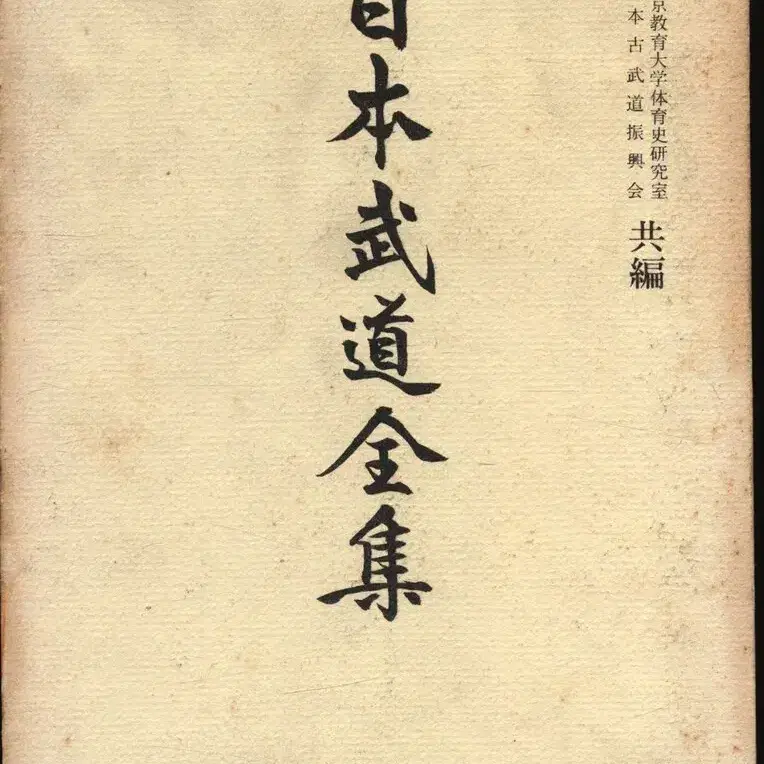 京教育大学体育史研究室
本古武道振興会
共編
日本武道全集